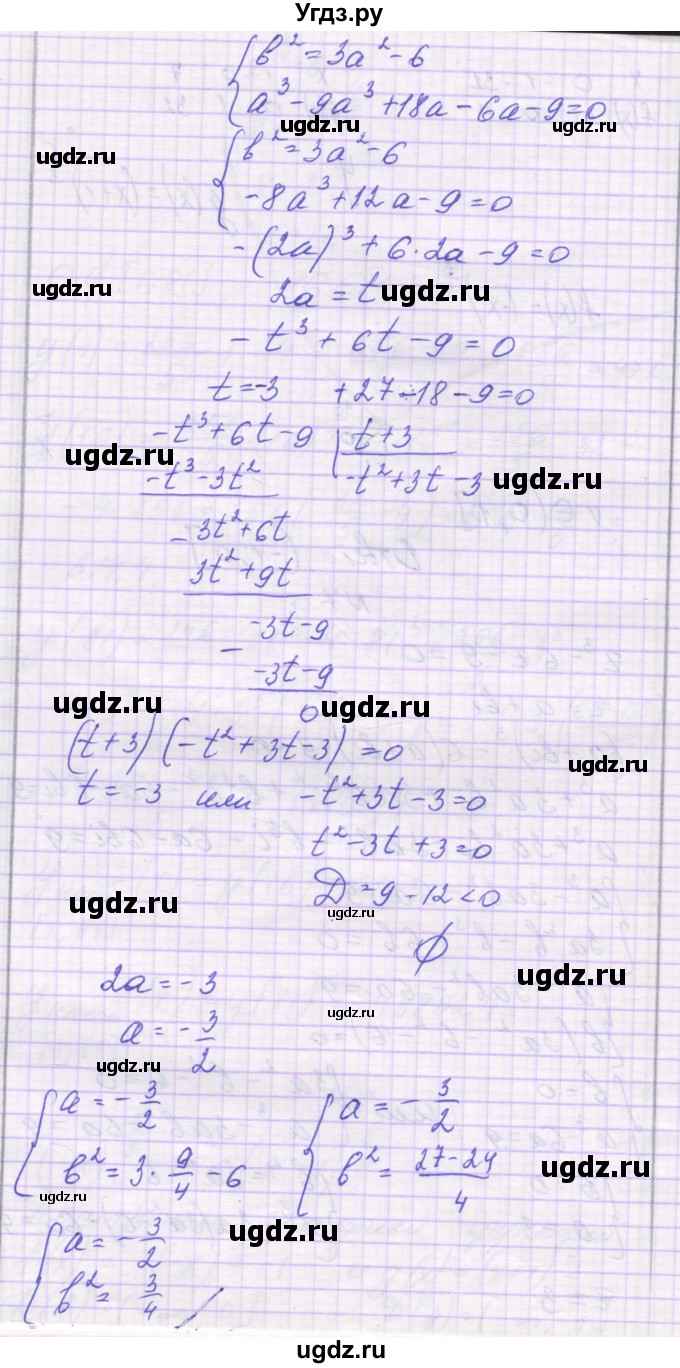 Угдз.ру
b² = 3a² - 6
a³ - 9a³ + 18a - 6a - 9 = 0
ugdz.ru ugdz.ru
ugdz.ru
b² = 3a² - 6
-8a³ + 12a - 9 = 0
-(2a)³ + 6·2a - 9 = 0
ugdz.ru
2a = t ugdz.ru
-t³ + 6t - 9 = 0
t = -3 +27 - 18 - 9 = 0
-t³ + 6t - 9 t + 3
ugdz.ru
-t³ - 3t² -t² + 3t - 3 ugdz.ru
3t² + 6t
ugdz.ru
3t² + 9t
-3t - 9
-3t - 9
0
ugdz.ru ugdz.ru
(t + 3)(-t² + 3t - 3) = 0
ugdz.ru
t = -3 или -t² + 3t - 3 = 0
t² - 3t + 3 = 0
D = 9 - 12 < 0
ugdz.ru ugdz.ru
∅
ugdz.ru
2a = -3
ugdz.ru
a = -3/2
ugdz.ru
a = -3/2 a = -3/2
b² = 3·9/4 - 6 b² = (27-24)/4
ugdz.ru ugdz.ru
a = -3/2
ugdz.ru
b² = 3/4
ugdz.ru